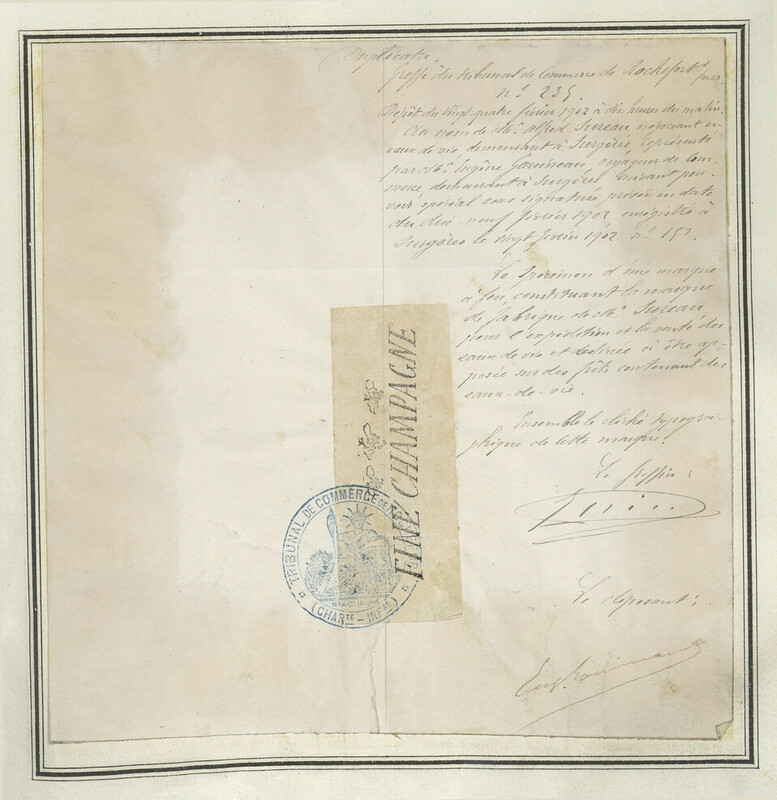 Duplicata.
Greffe du tribunal de Commerce de Rochefort s/mer
n° 235.
Dépôt du vingt quatre février 1902 à dix heures du matin.
Au nom de Mr. Alfred Sureau, négociant en
eaux de vie, demeurant à Surgères, représenté
par Mr. Eugène Gouineau, voyageur de Com-
merce, demeurant à Surgères suivant pou-
voir spécial sous signature privée en date
du dix-neuf février 1902 enregistré à
Surgères le vingt février 1902 n° 153.
Le spécimen d'une marque
à feu, constituant la marque
de fabrique de Mr. Sureau,
pour l'expédition et la vente des
eaux de vie et destinée à être ap-
posée sur des fûts contenant des
eaux-de-vie.
Ensemble le cliché typogra-
phique de cette marque.
Le greffier :
Le déposant :
Eug. Gouineau
FINE CHAMPAGNE
TRIBUNAL DE COMMERCE DE
(CHARTE - INFRE)